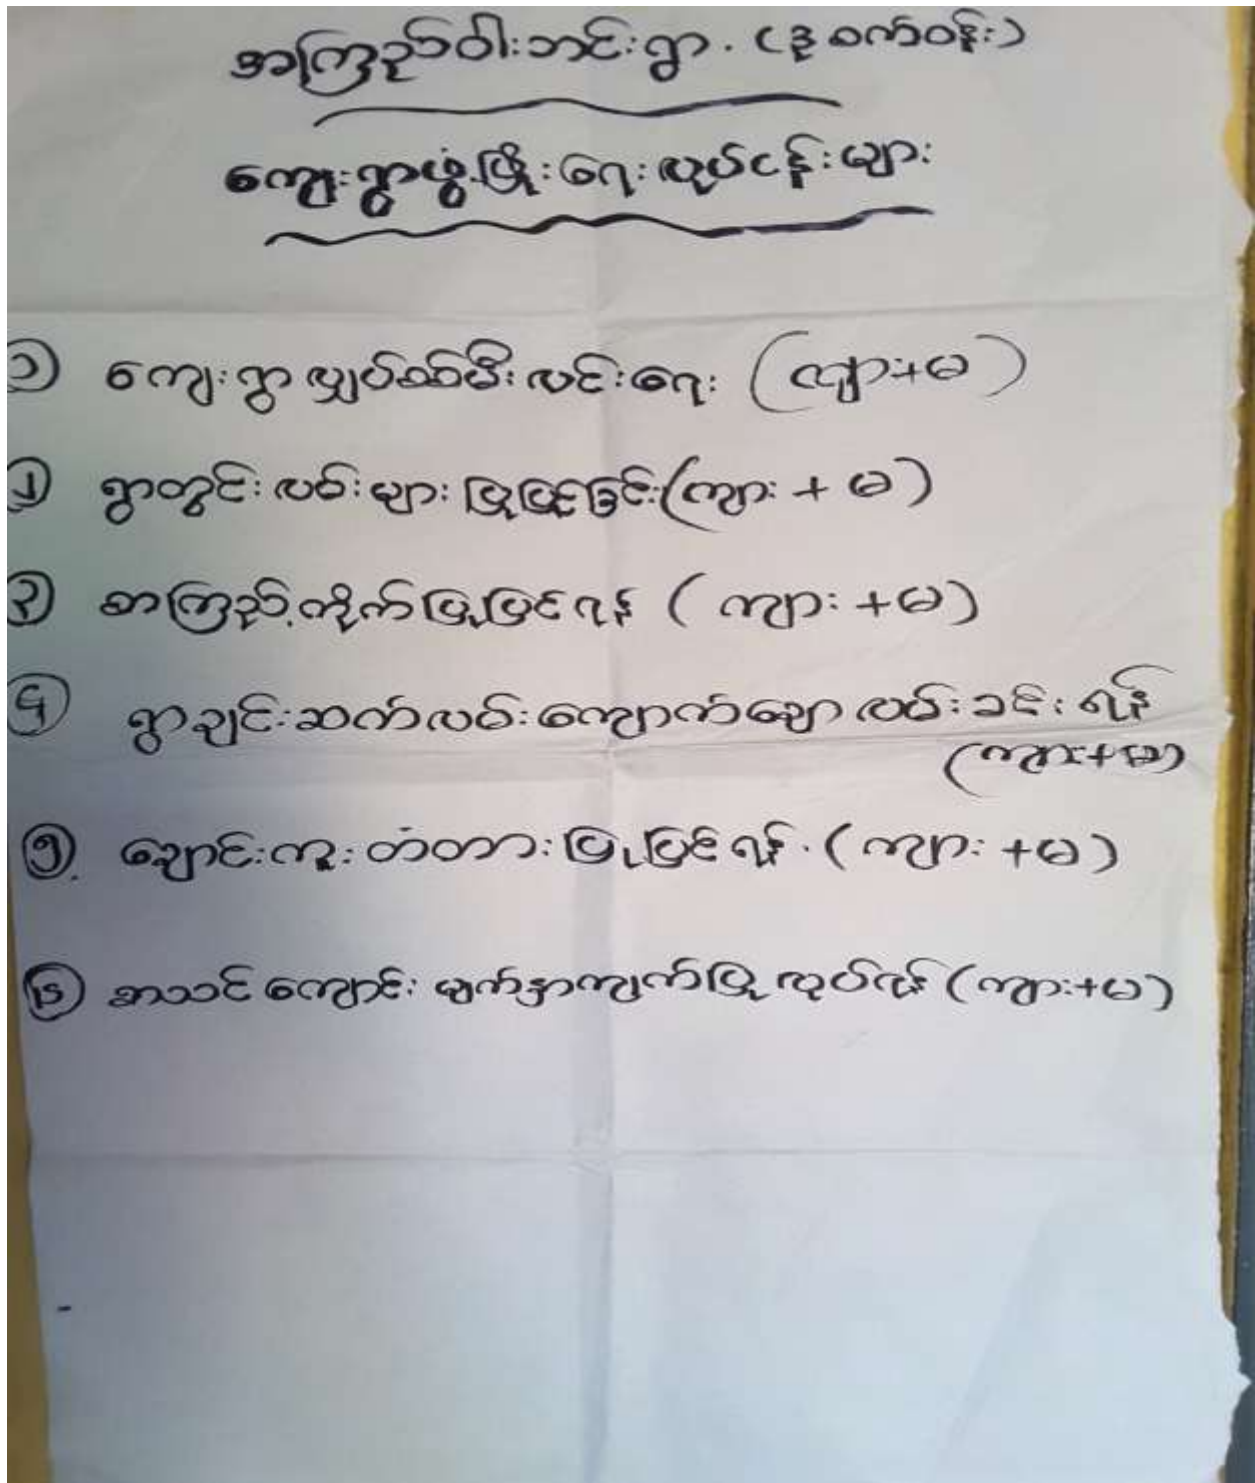 အကြည်ဝါးဘင်းရွာ. (ဒုစက်ဝန်း)
ကျေးရွာဖွံ့ဖြိုးရေးလုပ်ငန်းများ
၁ ကျေးရွာလျှပ်စစ်မီးလင်းရေး (ကျား+မ)
၂ ရွာတွင်းလမ်းများပြုပြင်ခြင်း(ကျား + မ)
၃ စာကြည့်တိုက်ပြုပြင်ရန် (ကျား +မ)
၄ ရွာချင်းဆက်လမ်းကျောက်ချောလမ်းခင်းရန်
(ကျား+မ)
၅. ချောင်းကူးတံတားပြုပြင်ရန်. (ကျား +မ)
၆ စာသင်ကျောင်း မျက်နှာကျက်ပြုလုပ်ရန် (ကျား+မ)